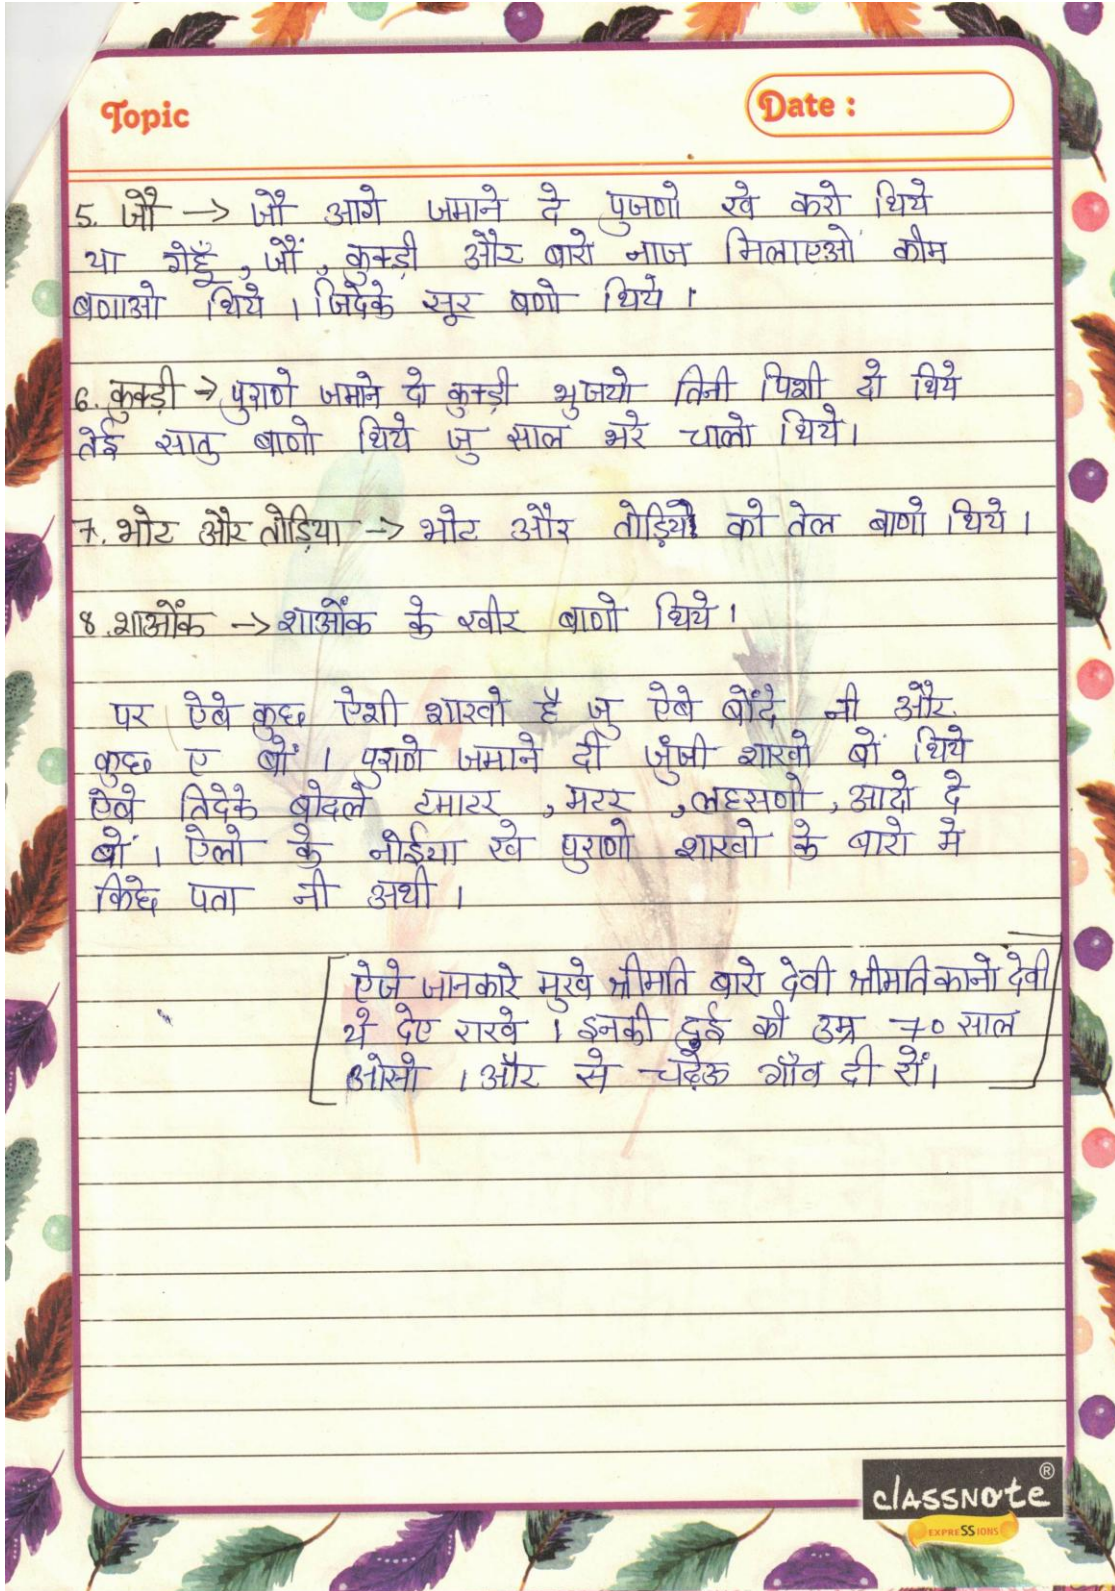 Topic
Date :
5. जौ → जौ आगे जमाने दे पुजणो खे करो थिये
या गेहूँ, जौं, कुकड़ी और बारो नाज मिलाएओं कौम
बणाओ थिये । जिदेके सूर बणो थिये ।
6. कुकड़ी → पुराणे जमाने दो कुकड़ी भुजयो तिनी पिशी दो थिये
तेई सातु बाणो थिये जु साल भरे चालो थिये।
7. भोट और तोड़िया → भोट और तोड़ियो को तेल बाणो थिये ।
8. शाओंक → शाओंक के खीर बाणो थिये ।
पर ऐबे कुछ ऐशी शाखो है जु ऐबे बोंदे नी और
कुछ ए बों । पुराणे जमाने दी जुंजी शाखो बों थिये
ऐबे तिदेके बोदले टमाटर , मटर , लहसणो , आदो दे
बों । ऐलो के नोईया खे पुराणो शाखो के बारो मे
किछे पता नी अथी ।
ऐजे जानकारे मुखे श्रीमति बारो देवी श्रीमति कानो देवी
ये देए राखे । इनकी दुई की उम्र 70 साल
ओसो । और से चढ़ेऊ गाँव दी रों।
classnote
®
EXPRESSIONS